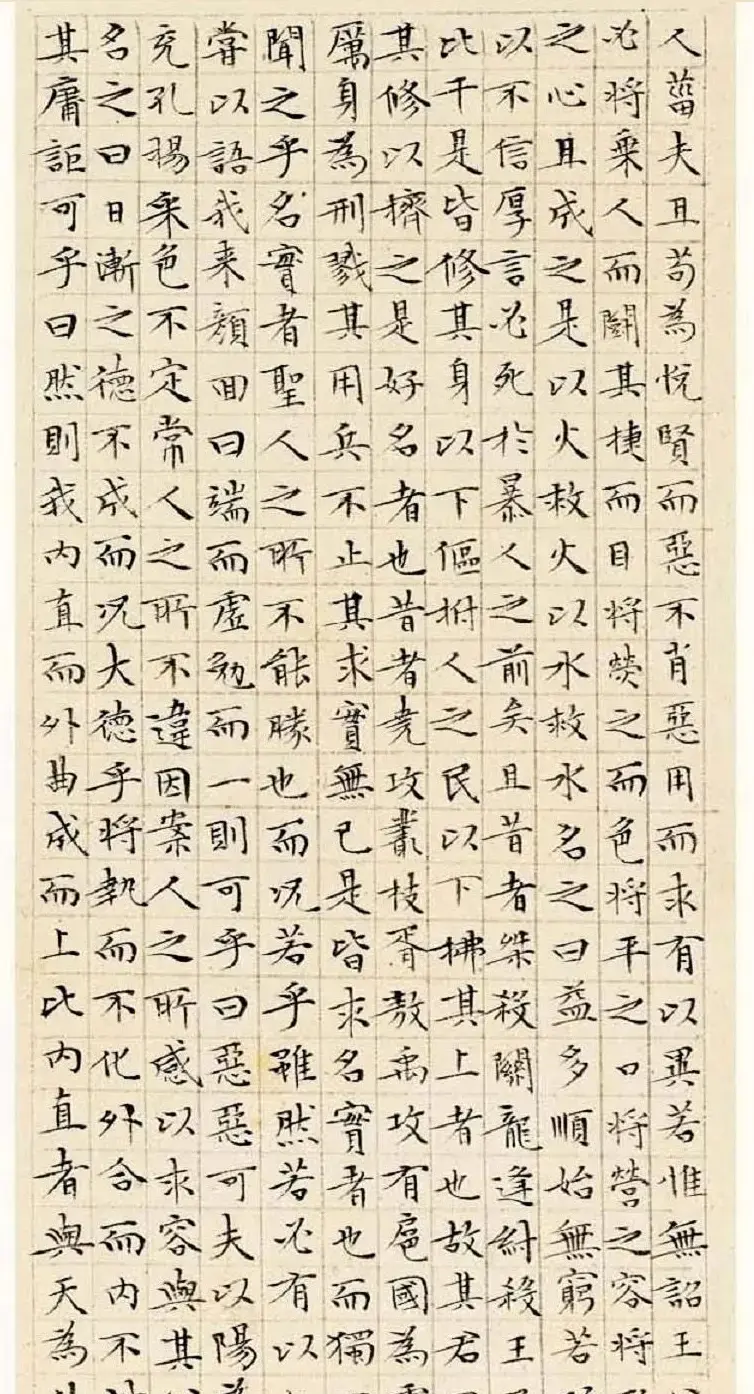 人菑夫且苟為悅賢而惡不肖惡用而求有以異若惟無詔王
必將乘人而鬭其捷而目將熒之而色將平之口將營之容將
之心且成之是以火救火以水救水名之曰益多順始無窮若
以不信厚言必死於暴人之前矣且昔者桀殺關龍逢紂殺王
比干是皆修其身以下傴拊人之民以下拂其上者也故其君
其修以擠之是好名者也昔者堯攻叢枝胥敖禹攻有扈國為
厲身為刑戮其用兵不止其求實無已是皆求名實者也而獨
聞之乎名實者聖人之所不能勝也而況若乎雖然若必有以
嘗以語我來顏回曰端而虛勉而一則可乎曰惡惡可夫以陽
充孔揚采色不定常人之所不違因案人之所感以求容與其
名之曰日漸之德不成而況大德乎將執而不化外合而內不
其庸詎可乎曰然則我內直而外曲成而上比內直者與天為